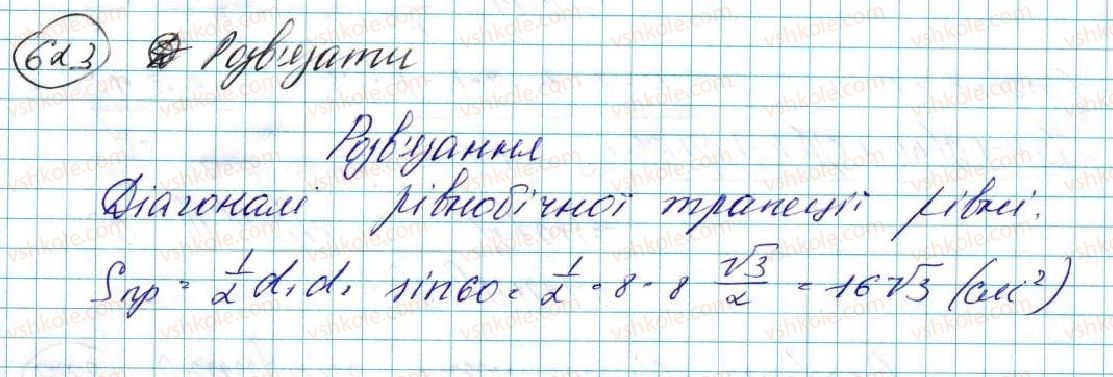 623 Розв'язати
Розв'язання
Діагоналі рівнобічної трапеції рівні.
Sтр = 1/2 d₁d₁ sin60 = 1/2 · 8 · 8 √3/2 = 16√3 (см²)